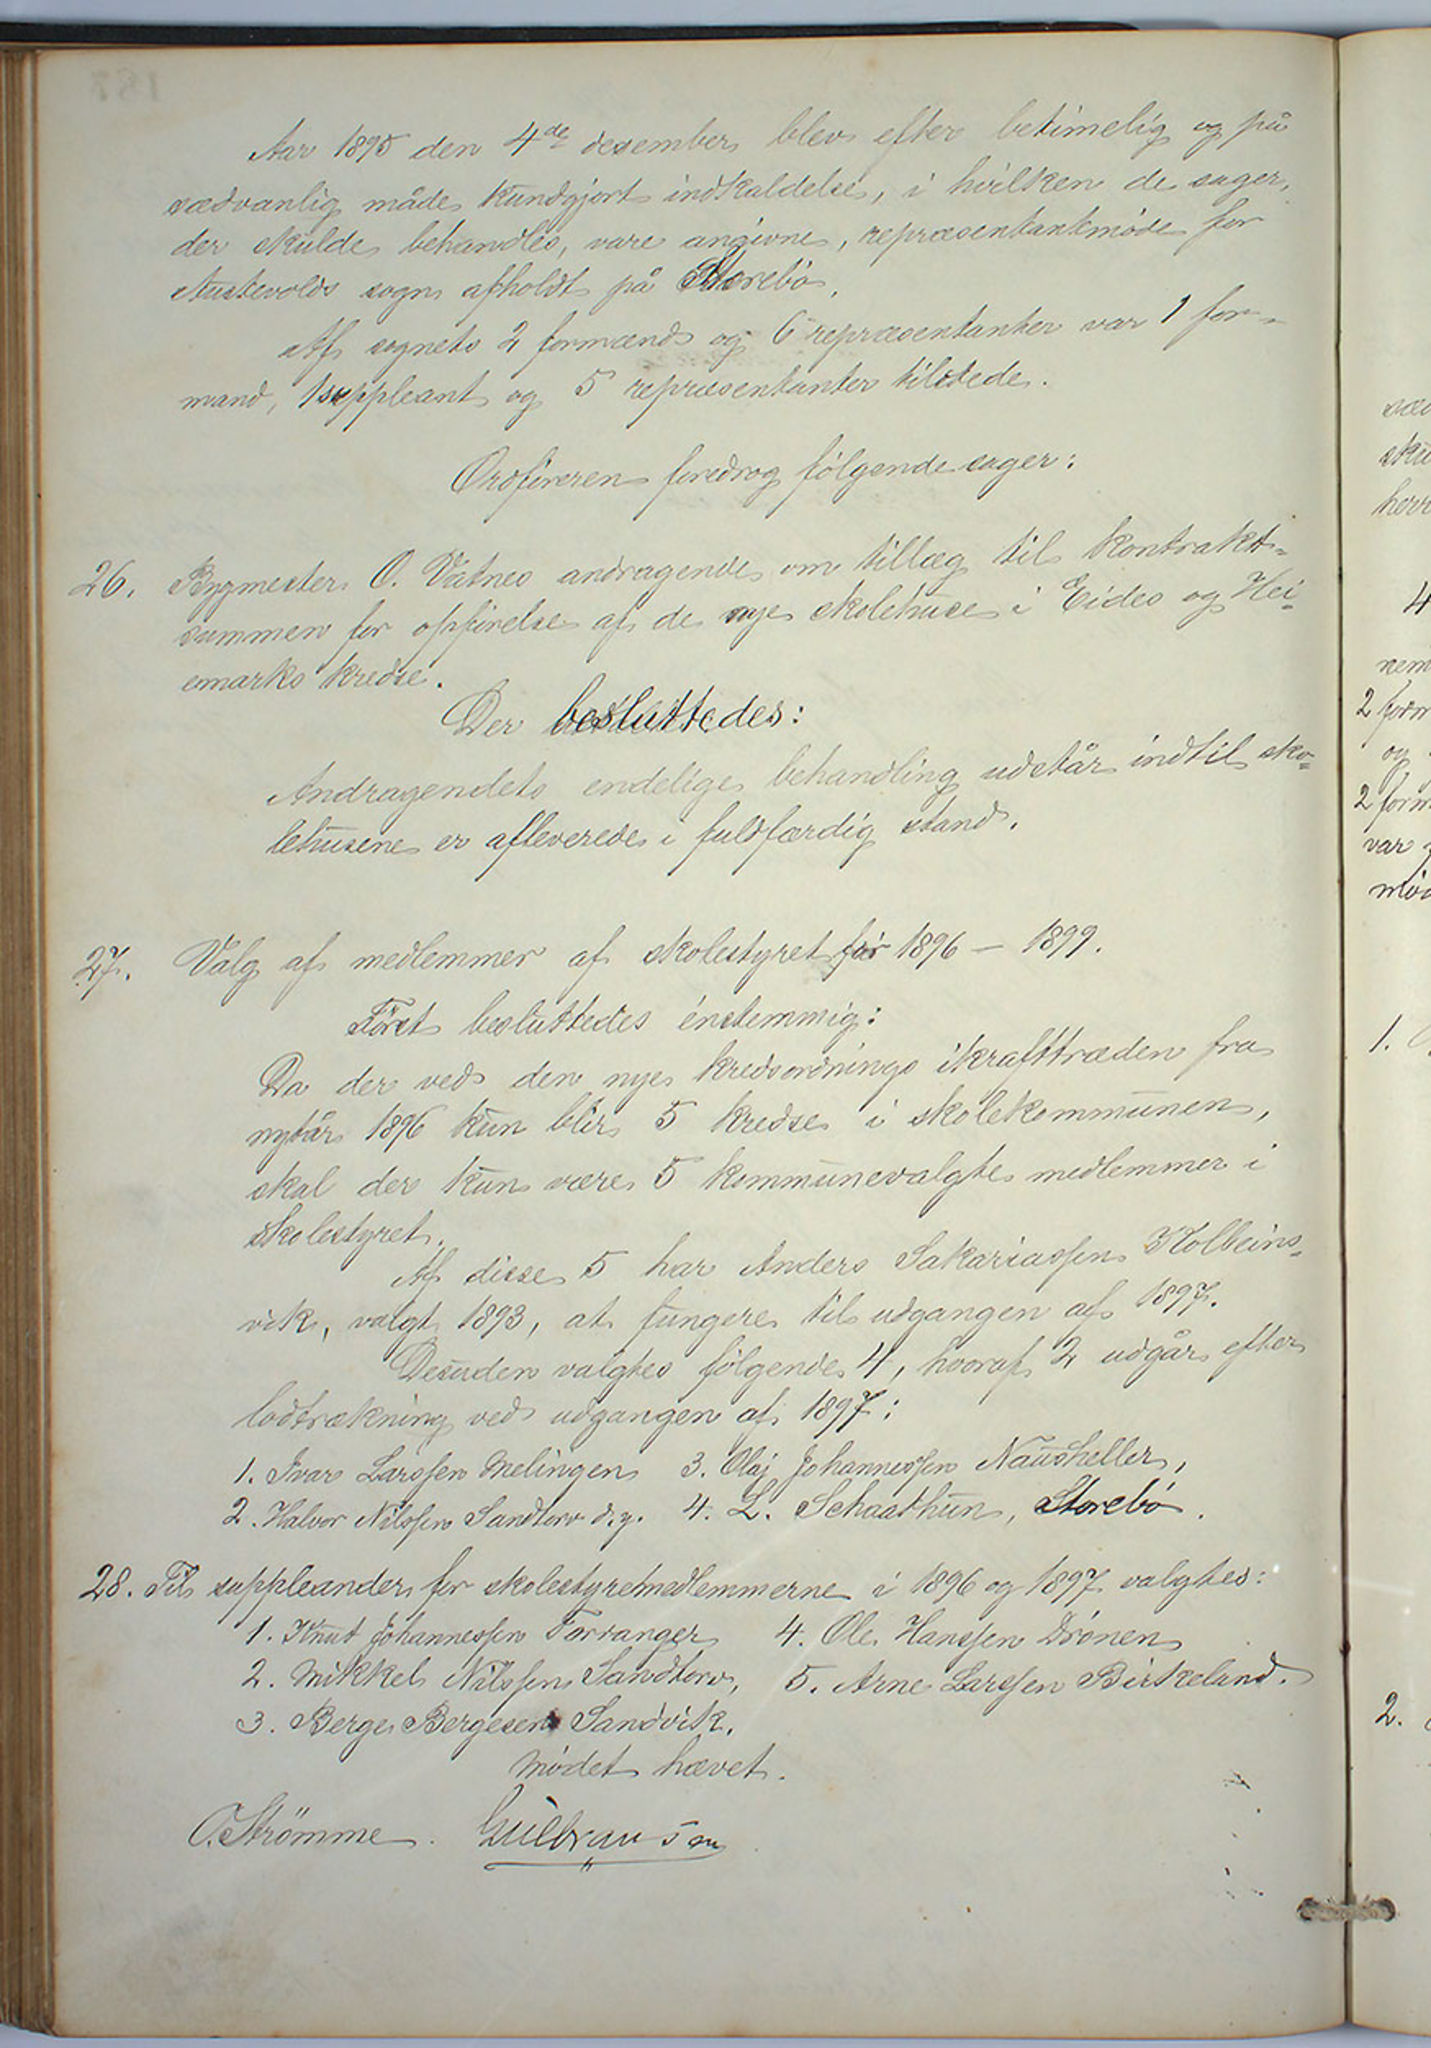 Aar 1895 den 4de desember blev efter betimelig og på
sædvanlig måde kundgjort indkaldelse, i hvilken de sager,
der skulde behandles, vare angivne, repræsentantmøde for
Austevolds sogn afholdt på Storebö.
Af sognets 2 formænd og 6 repræsentanter var 1 for-
mand, 1 suppleant og 5 repræsentanter tilstede.
Ordföreren foredrog fölgende sager:
26. Bygmester O. Vatnes andragende om tillæg til kontrakt-
summen for opförelse af de nye skolehuse i Eides og Hei-
emarks kredse.
Der besluttedes:
Andragendets endelige behandling udstår indtil sko-
lehusene er afleverede i fuldfærdig stand.
27. Valg af medlemmer af skolestyret for 1896 — 1899.
Först besluttedes énstemmig:
Da der ved den nye kredsordnings ikrafttræden fra
nytår 1896 kun blir 5 kredse i skolekommunen,
skal der kun være 5 kommunevalgte medlemmer i
skolestyret.
Af disse 5 har Anders Sakariassen Kolbeins-
vik, valgt 1893, at fungere til udgangen af 1897.
Desuden valgtes fölgende 4, hvoraf 2 udgår efter
lodtrækning ved udgangen af 1897:
1. Ivar Larssen Melingen 3. Olaj Johannessen Naustheller,
2. Halvor Nilssen Sandtorv d.y. 4. L. Schaathun, Storebö.
28. Til suppleander for skolestyremedlemmerne i 1896 og 1897 valgtes:
1. Knut Johannessen Torranger 4. Ole Hanssen Drönen
2. Mikkel Nilssen Sandtorv, 5. Arne Larssen Birkeland.
3. Berge Bergesen Sandvik.
Mödet hævet.
O. Strömme. Gulbransen
187
sæd
sku
herr
4
nem
2 form
og
2 form
var
mö
1.
2.